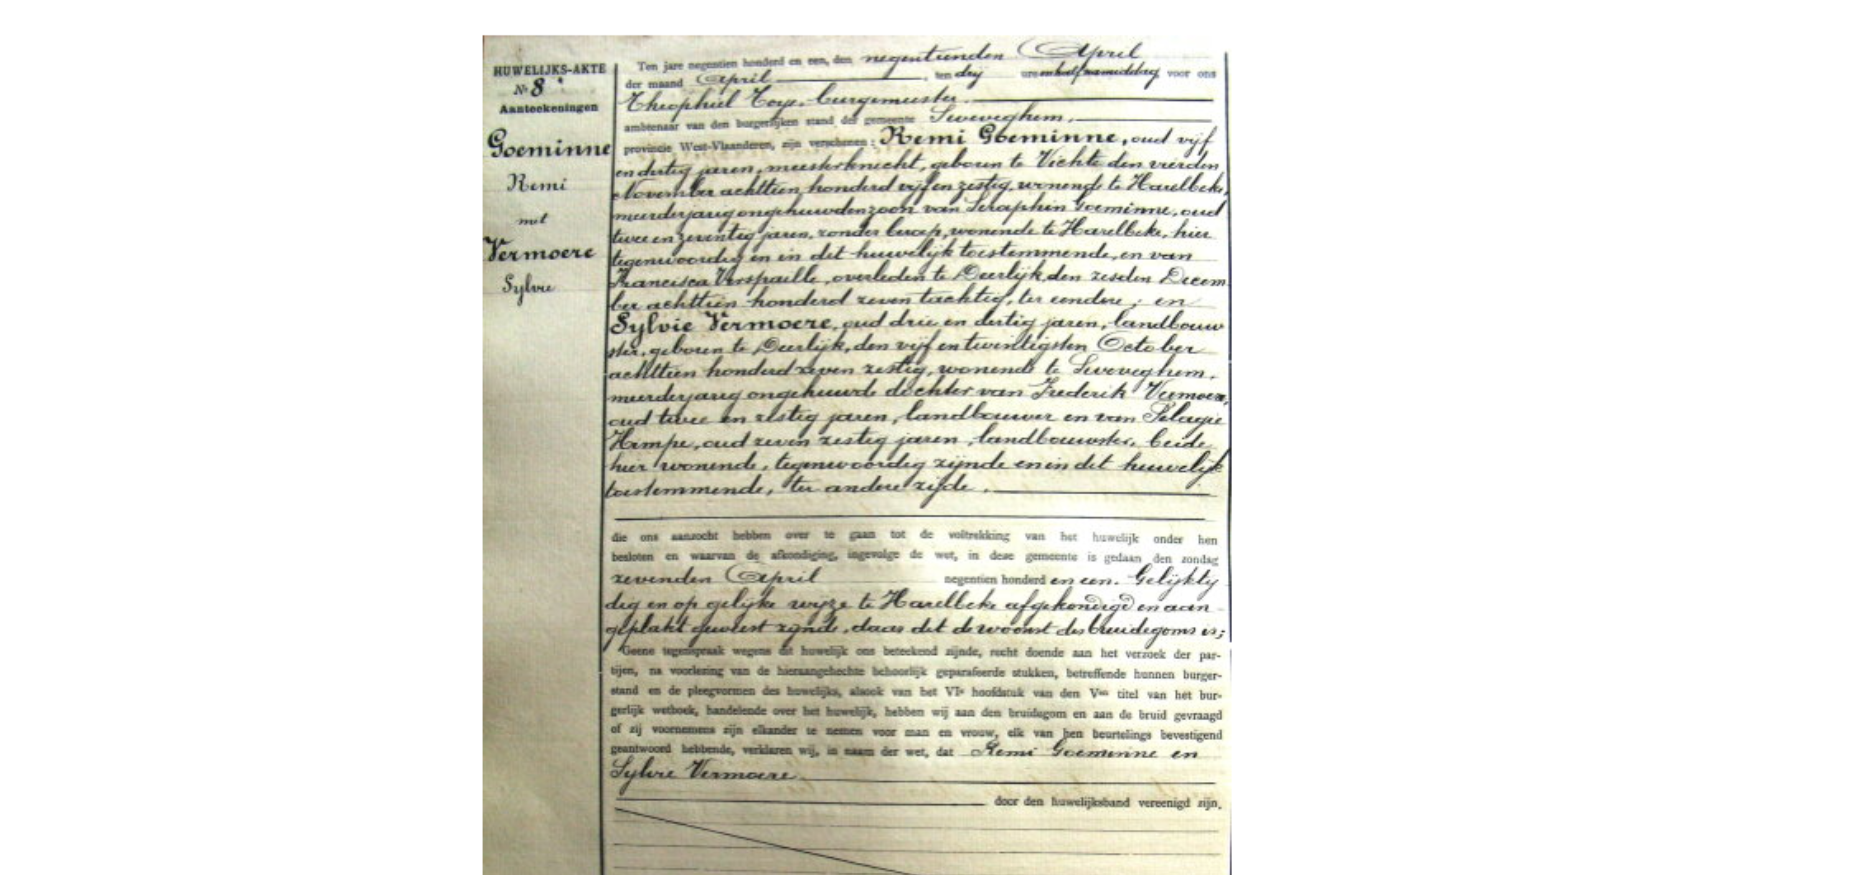 HUWELIJKS-AKTE
№ 8
Aanteekeningen
Goeminne
Remi
met
Vermoere
Sylvie
Ten jare negentien honderd en een, den negentienden April
der maand April, ten dry ure namiddag, voor ons
Theophiel Toye, burgemeester
ambtenaar van den burgerlijken stand der gemeente Sweveghem,
provincie West-Vlaanderen, zijn verschenen: Remi Goeminne, oud vijf
en dertig jaren, meesterknecht, geboren te Vichte den vierden
November achttien honderd vijf en zestig, wonende te Harelbeke,
meerderjarig ongehuwden zoon van Seraphin Goeminne, oud
twee en zeventig jaren, zonder beroep, wonende te Harelbeke, hier
tegenwoordig en in dit huwelijk toestemmende, en van
Francisca Verspaille, overleden te Deerlijk, den zesden Decem
ber achttien honderd zeven tachtig, ter eendere; en
Sylvie Vermoere, oud drie en dertig jaren, landbouw
ster, geboren te Deerlijk, den vijf en twintigsten October
achttien honderd zeven zestig, wonende te Sweveghem,
meerderjarig ongehuwde dochter van Frederik Vermoere,
oud twee en zestig jaren, landbouwer en van Pelagie
Himpe, oud zeven zestig jaren, landbouwster, beide
hier wonende, tegenwoordig zijnde en in dit huwelijk
toestemmende, ter andere zijde.
die ons aanzocht hebben over te gaan tot de voltrekking van het huwelijk onder hen
besloten en waarvan de afkondiging, ingevolge de wet, in deze gemeente is gedaan den zondag
zevenden April negentien honderd en een. Gelijkty
dig en op gelijke wijze te Harelbeke afgekondigd en aan-
geplakt geweest zijnde, daar dit de woonst des bruidegoms is;
Geene tegenspraak wegens dit huwelijk ons beteekend zijnde, recht doende aan het verzoek der par-
tijen, na voorlezing van de hieraangehechte behoorlijk geparafeerde stukken, betreffende hunnen burger-
stand en de pleegvormen des huwelijks, alsook van het VIe hoofdstuk van den Ven titel van het bur-
gerlijk wetboek, handelende over het huwelijk, hebben wij aan den bruidegom en aan de bruid gevraagd
of zij voornemens zijn elkander te nemen voor man en vrouw, elk van hen beurtelings bevestigend
geantwoord hebbende, verklaren wij, in naam der wet, dat Remi Goeminne en
Sylvie Vermoere
door den huwelijksband vereenigd zijn.